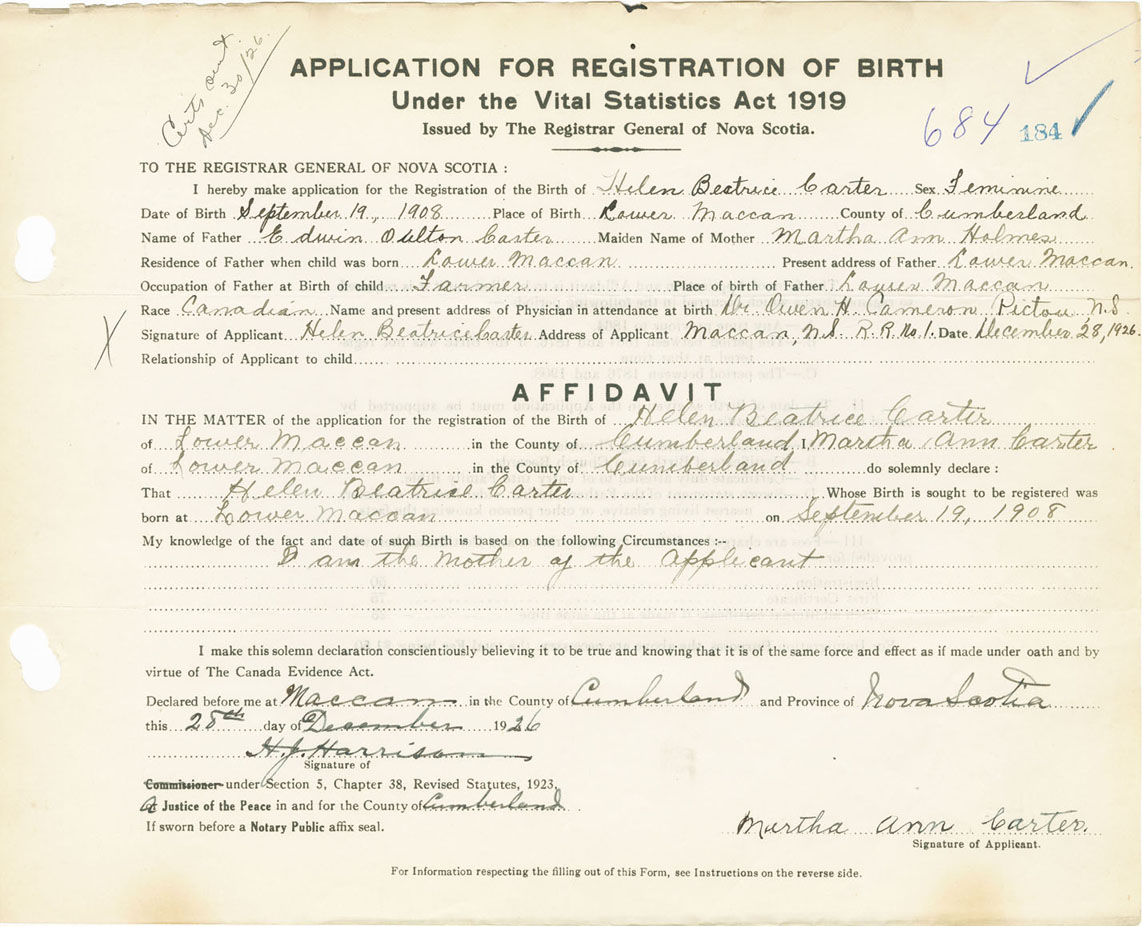 Certs out.
Dec. 30/26.
APPLICATION FOR REGISTRATION OF BIRTH
Under the Vital Statistics Act 1919
Issued by The Registrar General of Nova Scotia.
684 184
TO THE REGISTRAR GENERAL OF NOVA SCOTIA :
I hereby make application for the Registration of the Birth of Helen Beatrice Carter Sex Feminine
Date of Birth September 19, 1908 Place of Birth Lower Maccan County of Cumberland
Name of Father Edwin Oulton Carter Maiden Name of Mother Martha Ann Holmes
Residence of Father when child was born Lower Maccan Present address of Father Lower Maccan.
Occupation of Father at Birth of child Farmer Place of birth of Father Lower Maccan
Race Canadian Name and present address of Physician in attendance at birth Dr. Owen H. Cameron Pictou N.S.
X Signature of Applicant Helen Beatrice Carter Address of Applicant Maccan, N.S. R.R. No. 1. Date December 28, 1926.
Relationship of Applicant to child
AFFIDAVIT
IN THE MATTER of the application for the registration of the Birth of Helen Beatrice Carter
of Lower Maccan in the County of Cumberland I Martha Ann Carter
of Lower Maccan in the County of Cumberland do solemnly declare :
That Helen Beatrice Carter Whose Birth is sought to be registered was
born at Lower Maccan on September 19, 1908
My knowledge of the fact and date of such Birth is based on the following Circumstances :--
I am the Mother of the Applicant
I make this solemn declaration conscientiously believing it to be true and knowing that it is of the same force and effect as if made under oath and by
virtue of The Canada Evidence Act.
Declared before me at Maccan in the County of Cumberland and Province of Nova Scotia
this 28th day of December 1926
H.J. Harrison
Signature of
Commissioner under Section 5, Chapter 38, Revised Statutes, 1923,
A Justice of the Peace in and for the County of Cumberland
If sworn before a Notary Public affix seal.
Martha Ann Carter.
Signature of Applicant.
For Information respecting the filling out of this Form, see Instructions on the reverse side.